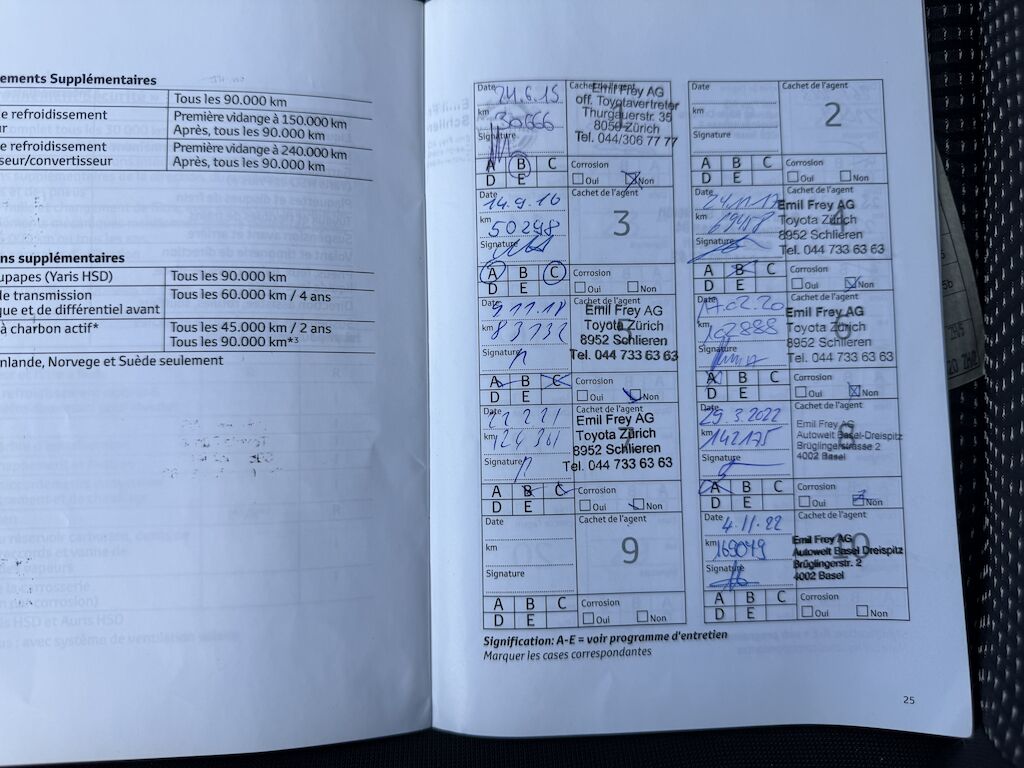 ements Supplémentaires
Tous les 90.000 km
e refroidissement
ur
Première vidange à 150.000 km
Après, tous les 90.000 km
e refroidissement
seur/convertisseur
Première vidange à 240.000 km
Après, tous les 90.000 km
ns supplémentaires
upapes (Yaris HSD)
Tous les 90.000 km
e transmission
que et de différentiel avant
Tous les 60.000 km / 4 ans
à charbon actif*
Tous les 45.000 km / 2 ans
Tous les 90.000 km*³
nlande, Norvege et Suède seulement
Date 24.6.15
km 30666
Signature
Cachet de l'agent
1
Emil Frey AG
off. Toyotavertreter
Thurgauerstr. 35
8050 Zürich
Tel. 044/306 77 77
A B C
D E
Corrosion
Oui Non
Date
km
Signature
Cachet de l'agent
2
A B C
D E
Corrosion
Oui Non
Date 14.9.16
km 50248
Signature
Cachet de l'agent
3
A B C
D E
Corrosion
Oui Non
Date 24.11.17
km 69458
Signature
Cachet de l'agent
4
Emil Frey AG
Toyota Zürich
8952 Schlieren
Tel. 044 733 63 63
A B C
D E
Corrosion
Oui Non
Date 9.11.18
km 83132
Signature
Cachet de l'agent
5
Emil Frey AG
Toyota Zürich
8952 Schlieren
Tel. 044 733 63 63
A B C
D E
Corrosion
Oui Non
Date 17.02.20
km 102888
Signature
Cachet de l'agent
6
Emil Frey AG
Toyota Zürich
8952 Schlieren
Tel. 044 733 63 63
A B C
D E
Corrosion
Oui Non
Date 22 2 21
km
Signature
Cachet de l'agent
7
Emil Frey AG
Toyota Zürich
8952 Schlieren
Tel. 044 733 63 63
A B C
D E
Corrosion
Oui Non
Date 29.3.2022
km 142175
Signature
Cachet de l'agent
8
Emil Frey AG
Autowelt Basel-Dreispitz
Brüglingerstrasse 2
4002 Basel
A B C
D E
Corrosion
Oui Non
Date
km
Signature
Cachet de l'agent
9
A B C
D E
Corrosion
Oui Non
Date 4.11.22
km 169049
Signature
Cachet de l'agent
10
Emil Frey AG
Autowelt Basel Dreispitz
Brüglingerstr. 2
4002 Basel
A B C
D E
Corrosion
Oui Non
Signification: A-E = voir programme d'entretien
Marquer les cases correspondantes
25